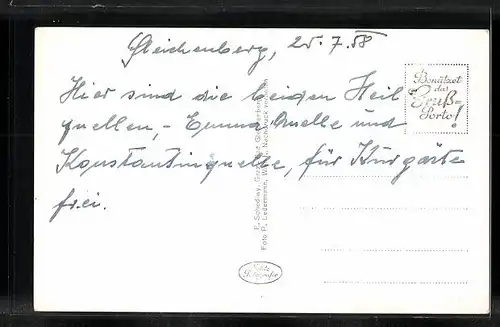 Gleichenberg, 25. 7. 58
Hier sind die beiden Heil
quellen, - Emmaquelle und
Konstantinquelle, für Kurgäste
frei.
Benützet
das
Gruß-
Porto!
Foto P. Ledermann, Wien
Echte
Fotografie